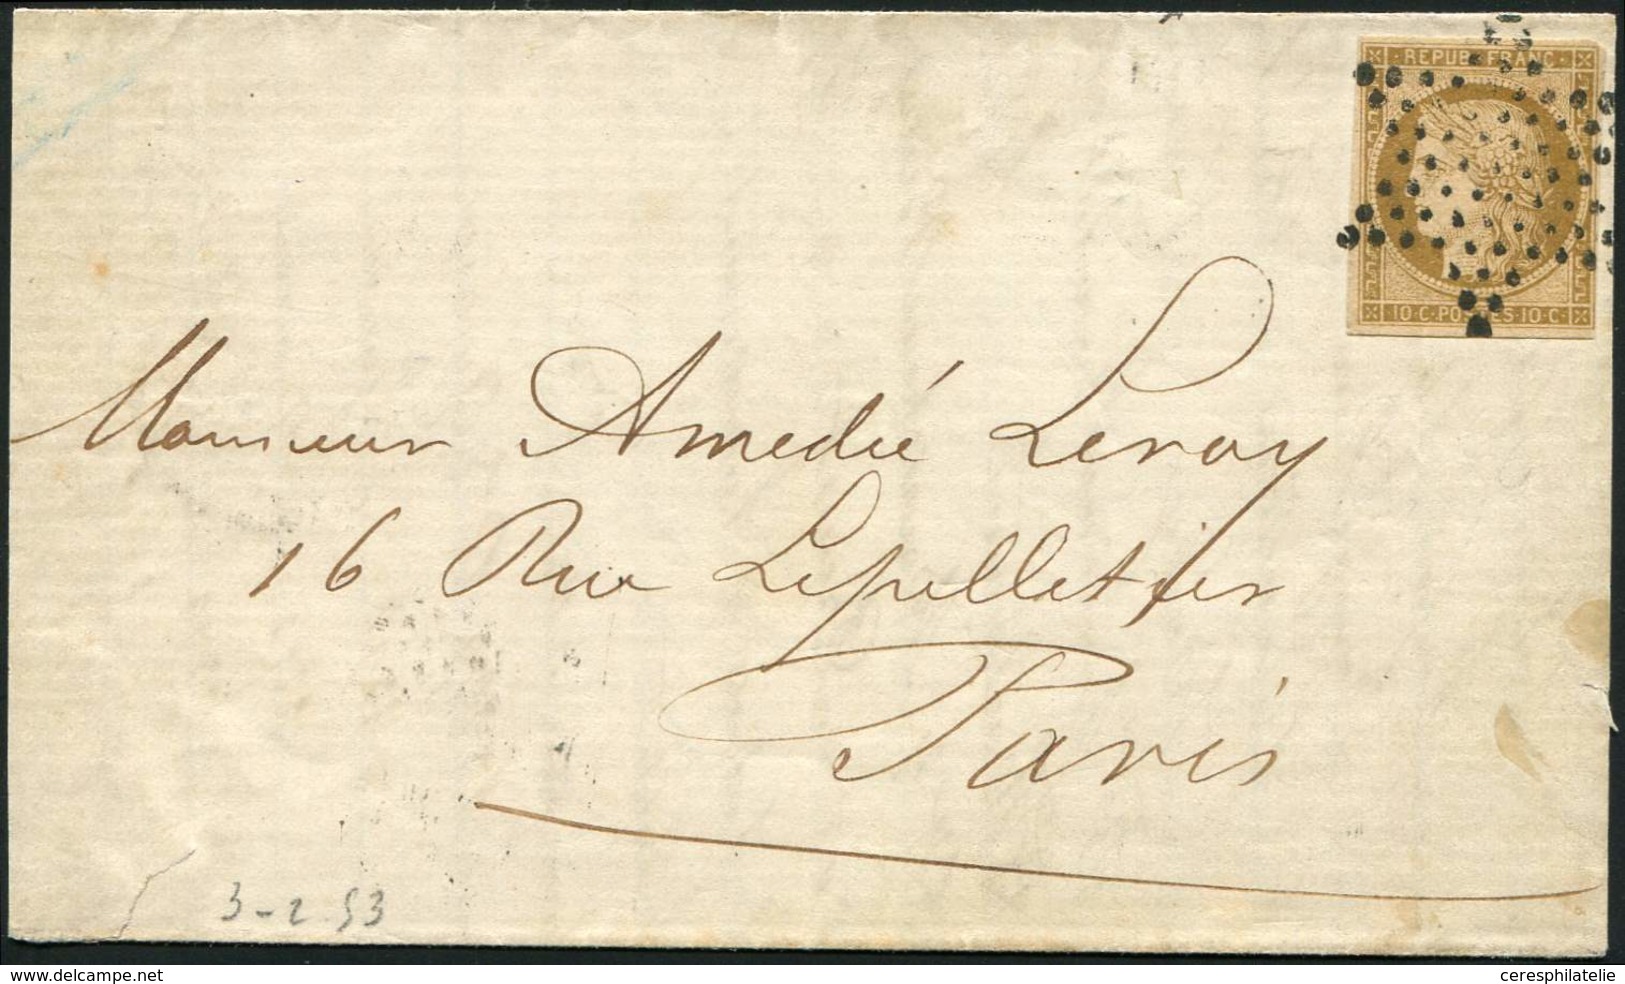 REPUB. FRANC.
10·C·POSTES·10·C·
Monsieur Amedié Leroy
16 Rue Lepelletier
Paris
3-2.53
www.delcampe.net
ceresphilatelie